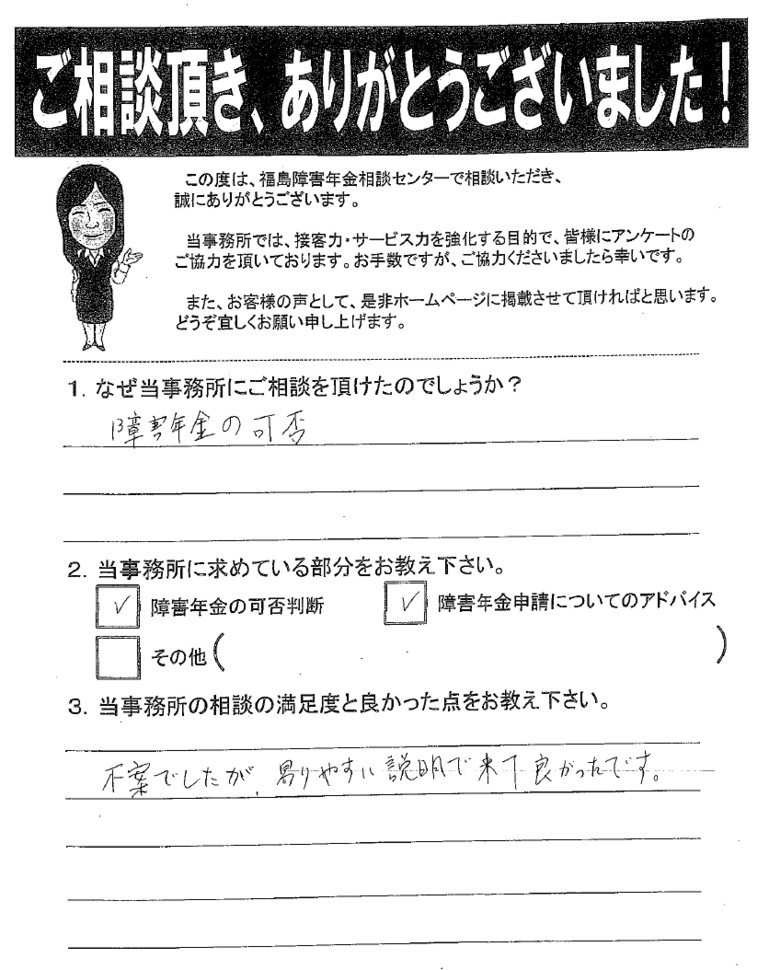 ご相談頂き、ありがとうございました！
この度は、福島障害年金相談センターで相談いただき、
誠にありがとうございます。
当事務所では、接客力・サービス力を強化する目的で、皆様にアンケートの
ご協力を頂いております。お手数ですが、ご協力くださいましたら幸いです。
また、お客様の声として、是非ホームページに掲載させて頂ければと思います。
どうぞ宜しくお願い申し上げます。
1. なぜ当事務所にご相談を頂けたのでしょうか？
障害年金の可否
2. 当事務所に求めている部分をお教え下さい。
✓ 障害年金の可否判断 ✓ 障害年金申請についてのアドバイス
その他( )
3. 当事務所の相談の満足度と良かった点をお教え下さい。
不案でしたが、 りやすい説明で来て良かったです。